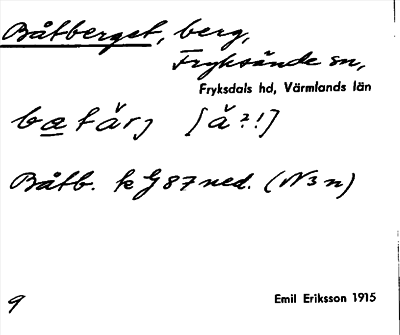 Båtberget, berg,
Fryksände sn,
Fryksdals hd, Värmlands län
[ă?!]
Båtb. k G 87 ned. (N3n)
9
Emil Eriksson 1915